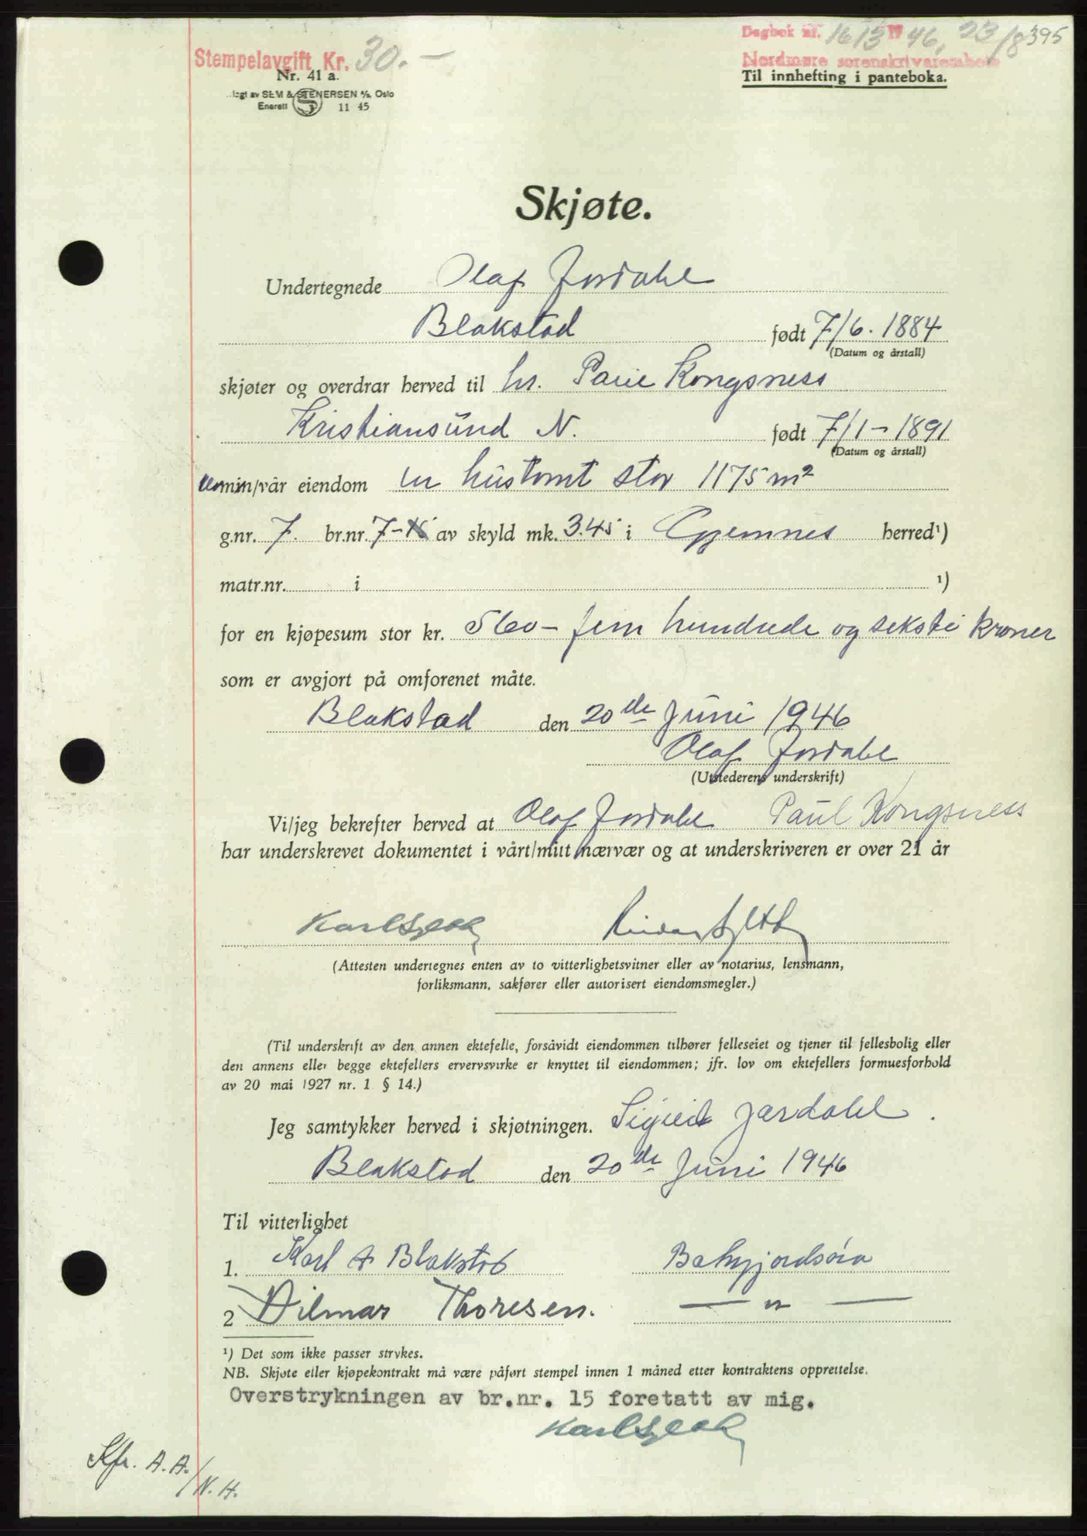 Stempelavgift Kr. 30.-
Nr. 41 a.
SEM & STENERSEN A/S, Oslo
Enerett S 11 45
Dagbok nr. 1613 19 46, 23/8 395
Nordmøre sorenskriverembete
Til innhefting i panteboka.
Skjøte.
Undertegnede Olaf Jordahl
Blakstad født 7/6. 1884
(Datum og årstall)
skjøter og overdrar herved til hr. Paul Kongsness
Kristiansund N. født 7/1 - 1891
(Datum og årstall)
min/vår eiendom en hustomt stor 1175 m²
g.nr. 7. br.nr. 7-15 av skyld mk. 3.45 i Gjemnes herred¹)
matr.nr. i ¹)
for en kjøpesum stor kr. 560 - fem hundrede og seksti kroner
som er avgjort på omforenet måte.
Blakstad den 20 de Juni 1946
Olaf Jordahl
(Utstederens underskrift)
Vi/jeg bekrefter herved at Olaf Jordahl Paul Kongsness
har underskrevet dokumentet i vårt/mitt nærvær og at underskriveren er over 21 år
(Attesten undertegnes enten av to vitterlighetsvitner eller av notarius, lensmann,
forliksmann, sakfører eller autorisert eiendomsmegler.)
(Til underskrift av den annen ektefelle, forsåvidt eiendommen tilhører felleseiet og tjener til fellesbolig eller
den annens eller begge ektefellers ervervsvirke er knyttet til eiendommen; jfr. lov om ektefellers formuesforhold
av 20 mai 1927 nr. 1 § 14.)
Jeg samtykker herved i skjøtningen. Sigrid Jordahl.
Blakstad den 20 de Juni 1946
Til vitterlighet
1. Karl A Blakstad Batnfjordsøra
2 Hilmar Thoresen. — " —
¹) Det som ikke passer strykes.
NB. Skjøte eller kjøpekontrakt må være påført stempel innen 1 måned etter kontraktens opprettelse.
Overstrykningen av br.nr. 15 foretatt av mig.
Kfr. A.A./N.H.